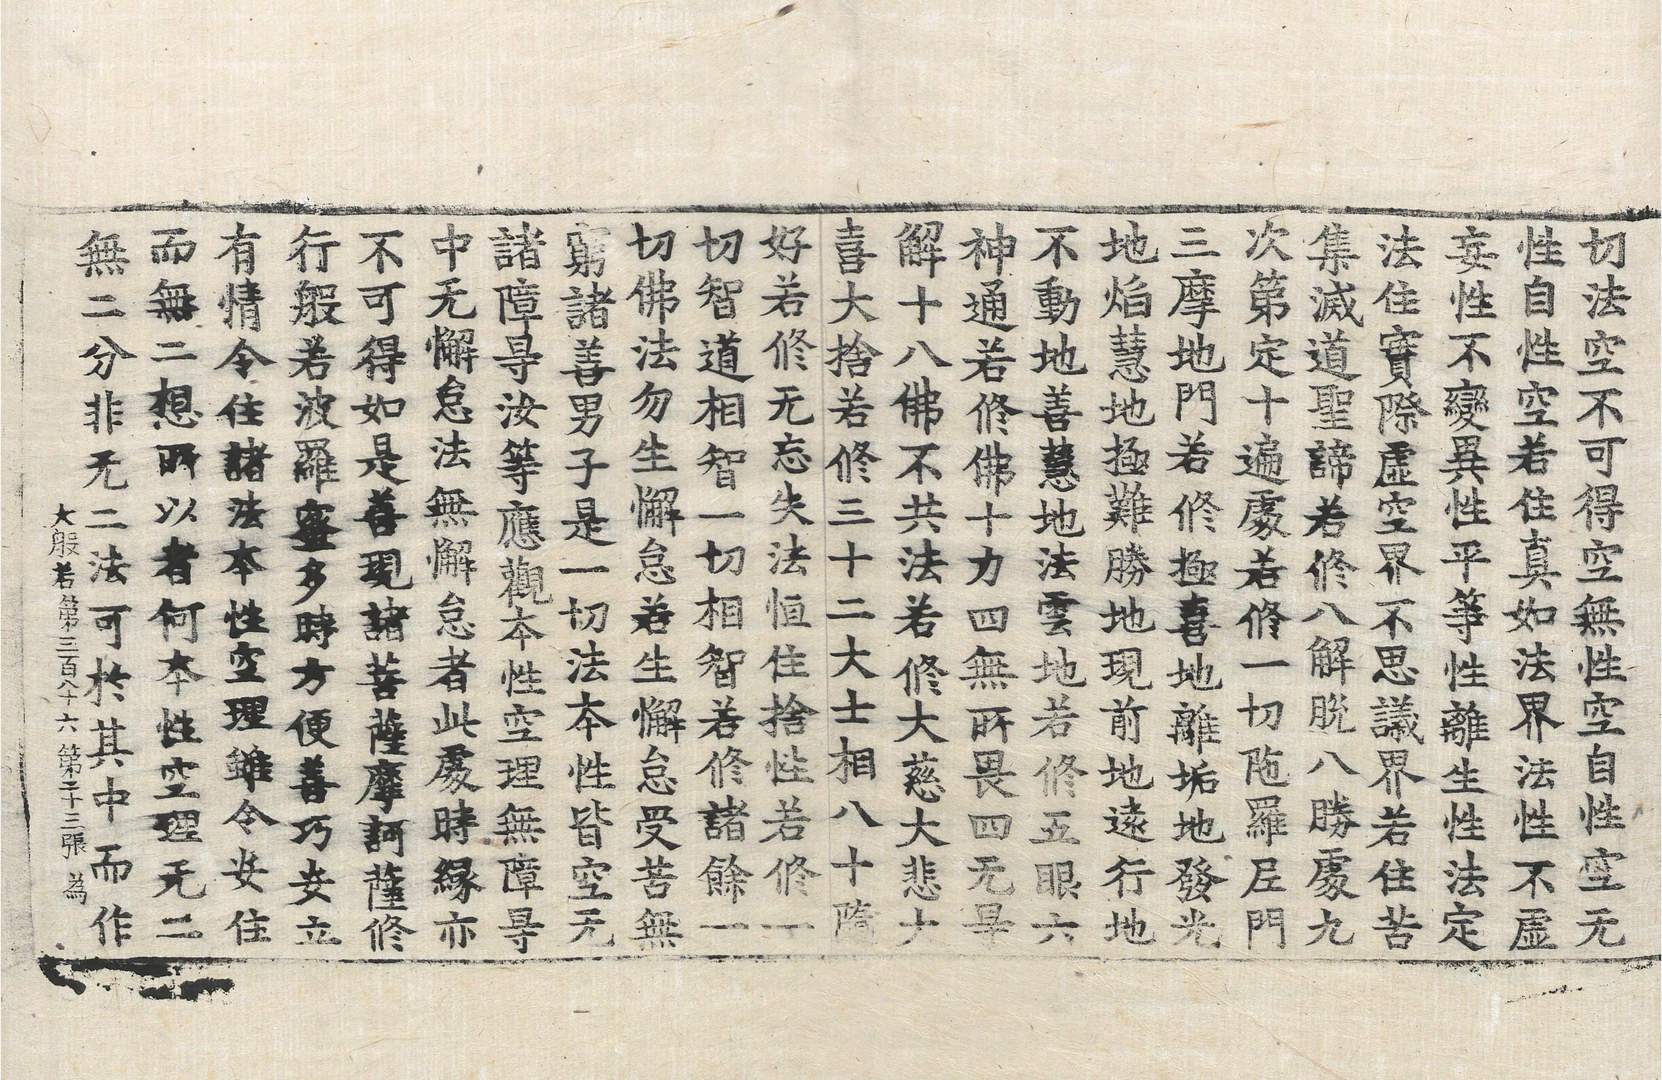 切法空不可得空無性空自性空无
性自性空若住真如法界法性不虛
妄性不變異性平等性離生性法定
法住實際虛空界不思議界若住苦
集滅道聖諦若修八解脫八勝處九
次第定十遍處若修一切陁羅尼門
三摩地門若修極喜地離垢地發光
地焰慧地極難勝地現前地遠行地
不動地善慧地法雲地若修五眼六
神通若修佛十力四無所畏四无㝵
解十八佛不共法若修大慈大悲大
喜大捨若修三十二大士相八十隨
好若修无忘失法恒住捨性若修一
切智道相智一切相智若修諸餘一
切佛法勿生懈怠若生懈怠受苦無
窮諸善男子是一切法本性皆空无
諸障㝵汝等應觀本性空理無障㝵
中无懈怠法無懈怠者此處時緣亦
不可得如是善現諸菩薩摩訶薩修
行般若波羅蜜多時方便善巧安立
有情令住諸法本性空理雖令安住
而無二想所以者何本性空理无二
無二分非无二法可於其中而作
大般若第三百八十六 第二十三張 為